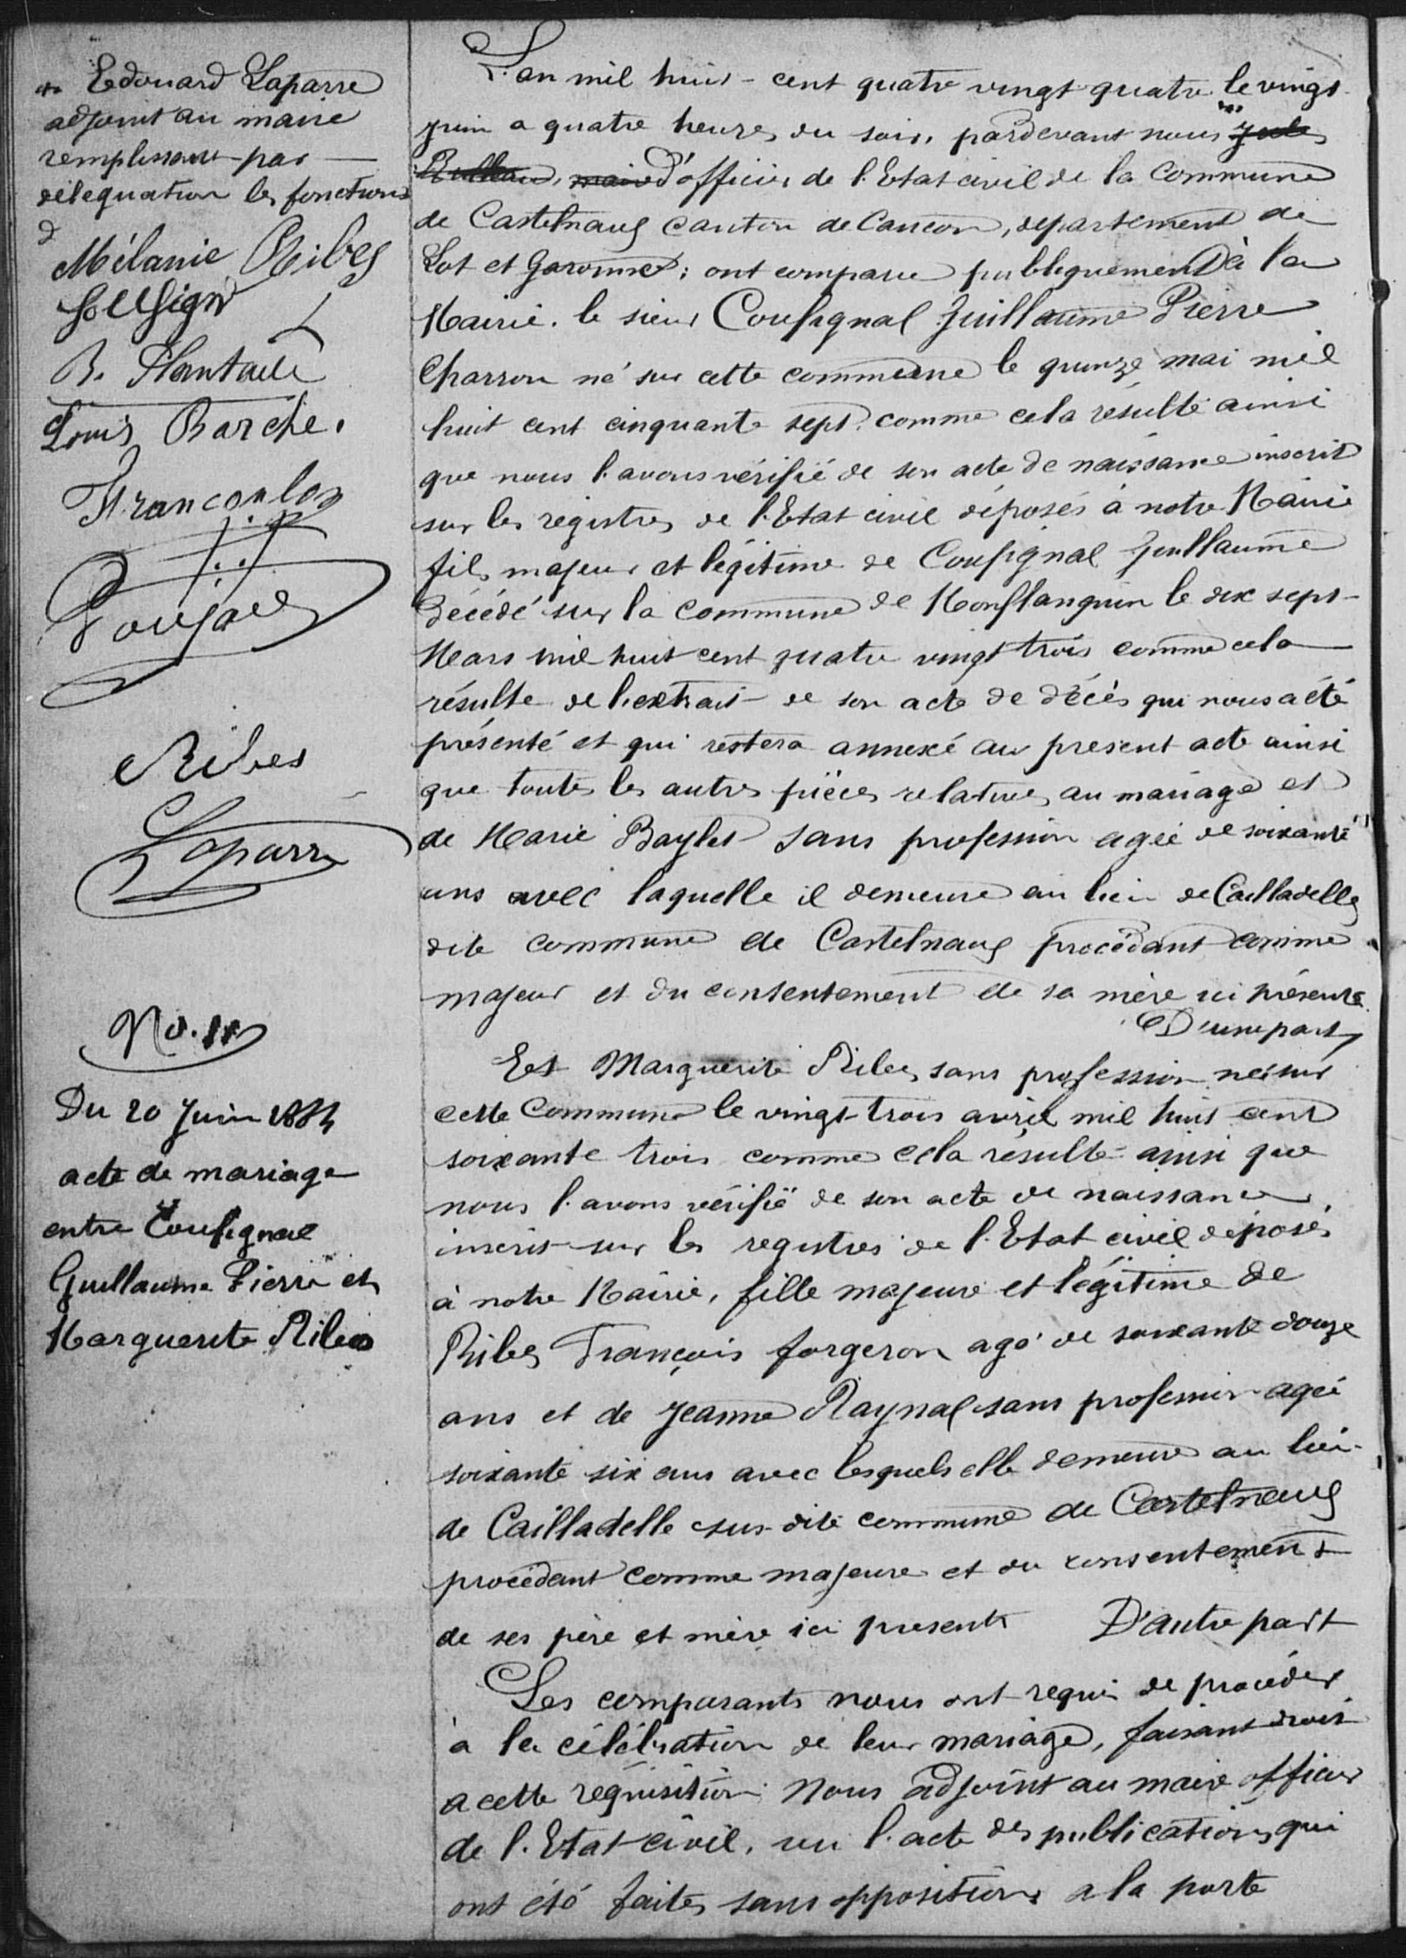 Edouard Laparre
adjoint au maire
remplissant par
délégation les fonctions
d
Mélanie Ribes
B. Plantade
Louis Barche.
Françoulon
Poujade
Ribes
Laparre
No. 11
Du 20 Juin 1884
acte de mariage
entre Coufignal
Guillaume Pierre et
Marguerite Ribes
L'an mil huit-cent quatre vingt quatre le vingt
juin a quatre heures du soir, pardevant nous Jules
maire d'officier de l'Etat civil de la Commune
de Castelnaud canton de Cancon, département de
Lot et Garonne; ont comparu publiquement à la
Mairie. le sieur Coufignal Guillaume Pierre
Charron né sur cette commune le quinze mai mil
huit cent cinquante sept. comme cela résulte ainsi
que nous l'avons vérifié de son acte de naissance inscrit
sur les registres de l'Etat civil déposés à notre Mairie
fils majeur et légitime de Coufignal Guillaume
Décédé sur la commune de Monflanquin le dix sept
Mars mil huit cent quatre vingt trois comme cela
résulte de l'extrait de son acte de décès qui nous a été
présenté et qui restera annexé au present acte ainsi
que toutes les autres pièces relatives au mariage et
de Marie Baylet sans profession agée de soixante
ans avec laquelle il demeure au lieu de Cailladelles
dite commune de Castelnaud procédant comme
majeur et du consentement de sa mère ici présente
D'une part,
Et Marguerite Ribes sans profession née sur
cette Commune le vingt trois avril mil huit cent
soixante trois comme cela résulte ainsi que
nous l'avons vérifié de son acte de naissance
inscrit sur les registres de l'Etat civil déposés
à notre Mairie, fille majeure et légitime de
Ribes François forgeron agé de soixante douze
ans et de Jeanne Raynal sans profession agée
soixante six ans avec lesquels elle demeure au lieu
de Cailladelle sus-dite commune de Castelnaud
procédant comme majeure et du consentement
de ses père et mère ici presents D'autre part
Les comparants nous ont requis de procéder
à la célébration de leur mariage, faisant droit
a cette réquisition Nous adjoint au maire officier
de l'Etat civil, vu l'acte des publications qui
ont été faites sans opposition, a la porte